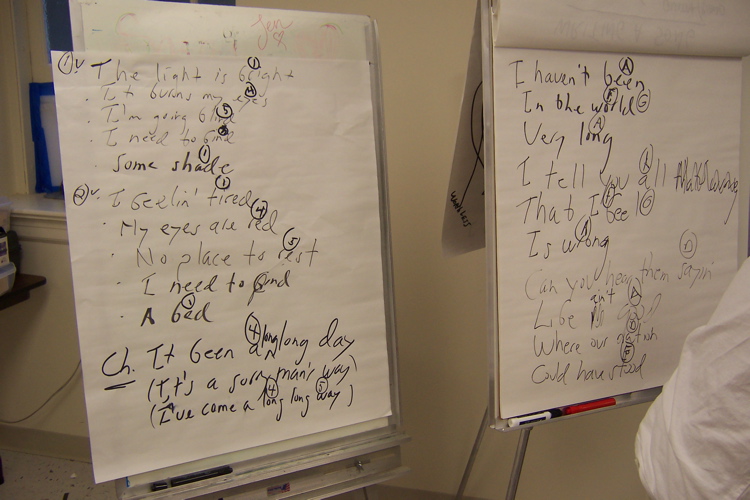 Jen
1 v The light is bright 1
· It burns my eyes 4
· I'm going blind 5
· I need to find
· Some shade 1
2 v. I feelin' tired 1
· My eyes are red 4
· No place to rest 5
· I need to find
· A bed 1
Ch. It been a long long day 4
(It's a sorry man's way)
(I've come a long long way) 4 5
I haven't been A
In the world G
Very long A
I tell you all A
That I feel G
Is wrong A
Can you hear them sayin' D
Life ain't A
Where our
Could have stood